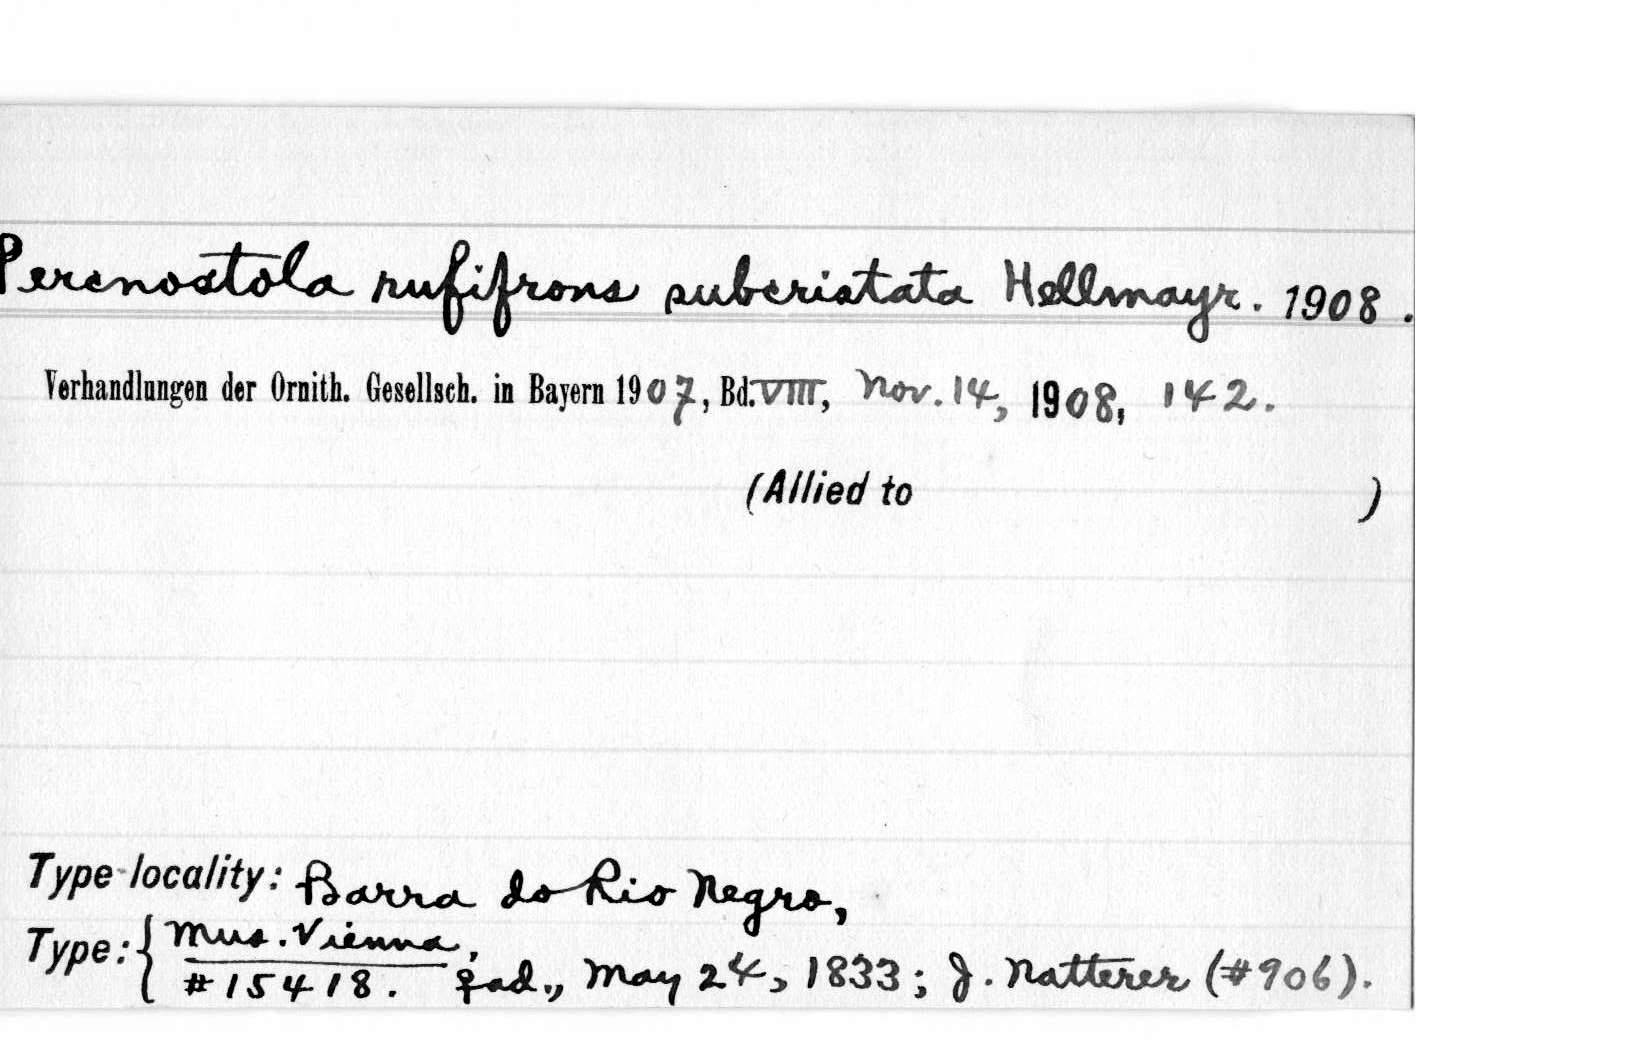 Percnostola rufifrons subcristata Hellmayr. 1908.
Verhandlungen der Ornith. Gesellsch. in Bayern 1907, Bd. VIII, Nov. 14, 1908, 142.
(Allied to )
Type locality: Barra do Rio Negro,
Type: { Mus. Vienna,
#15418. ♀ad., May 24, 1833; J. Natterer (#906).